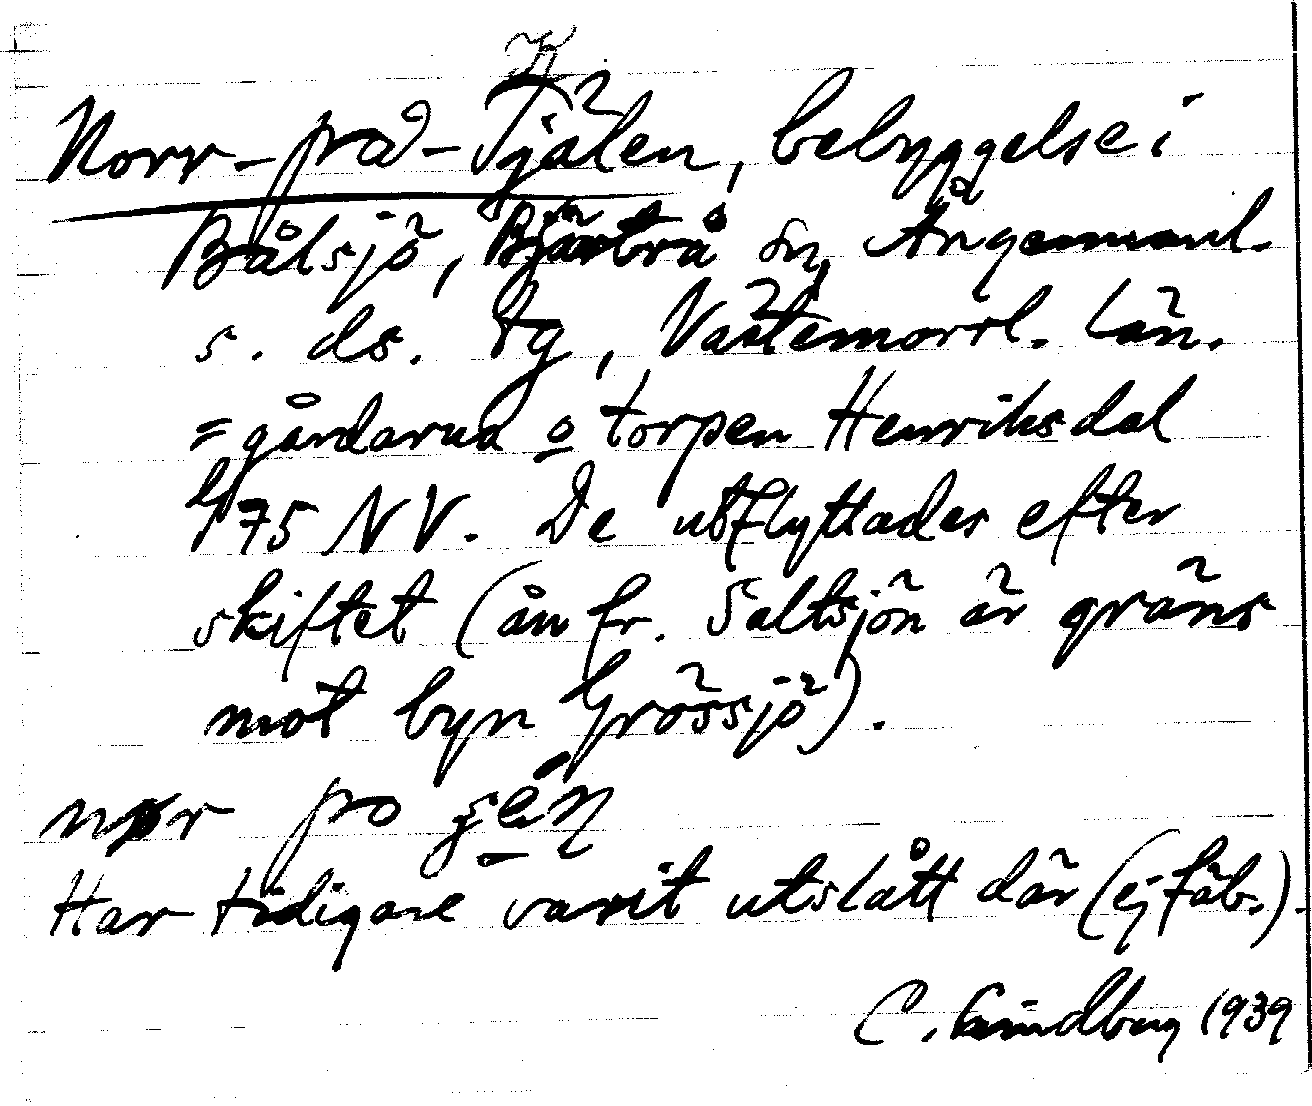 K
Norr-på-Tjälen, bebyggelse i
Bålsjö, Bjärtrå sn, Ångermanl.
s. ds. tg, Västernorrl. län.
= gårdarna o torpen Henriksdal
1/75 NV. De utflyttades efter
skiftet (ån fr. Saltsjön är gräns
mot byn Grössjö).
nør po
Har tidigare varit utslått där (ej fäb.).
C. Lindberg 1939